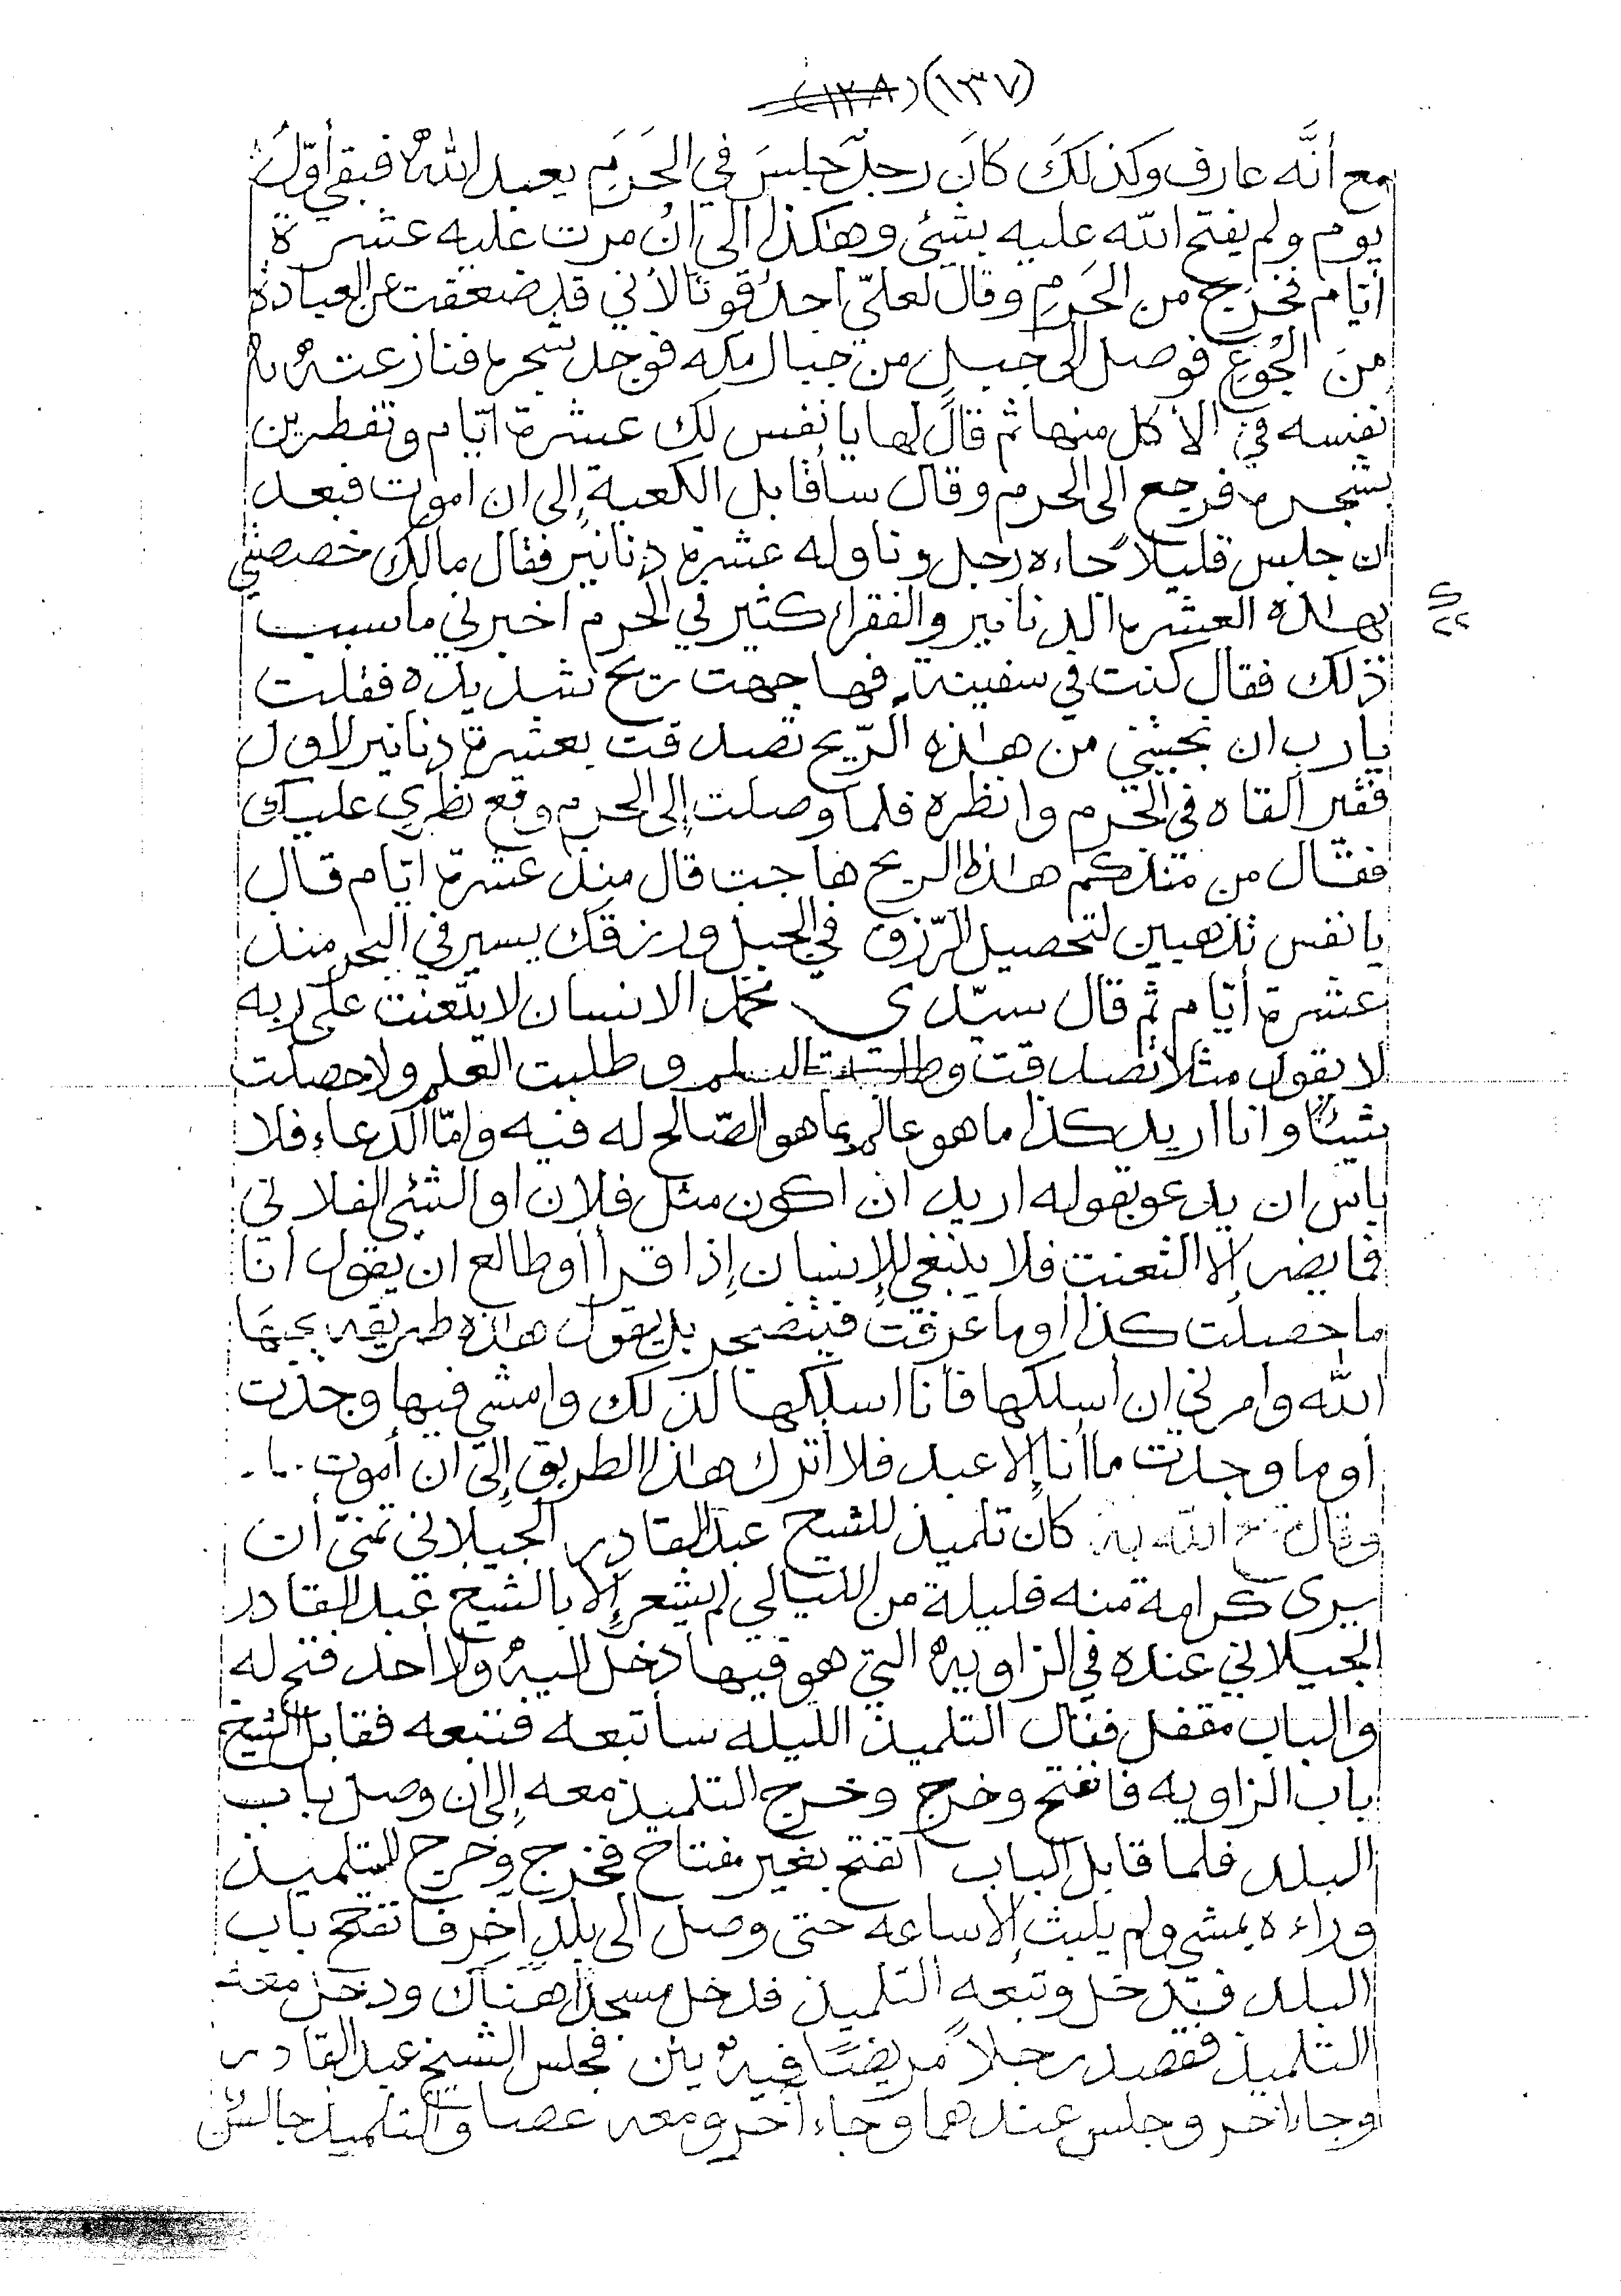 (١٣٧) (١٣٨)
مع أنَّه عارف وكذلكَ كانَ رجلٌ جلسَ في الحَرَمِ يعبد اللهُ فبقي أوّلُ
يوم ولم يفتح الله عليه بشئ وهٰكذا الى ان مرت عليه عشرة
أيام فخرج من الحَرَمِ وقال لعلّي اجدُ قوتًا لأني قد ضعفت عن العبادة
منَ الجُوعِ فوصل الى جبل من جبال مكه فوجد شجره فنازعته
نفسه في الأكل منها ثم قال لها يا نفس لك عشرة ايّام وتفطرين
بشجرة فرجع الى الحرم وقال سأقابل الكعبة إلى ان اموت فبعد
ان جلس قليلاً جاءه رجل وناوله عشرة دنانير فقال مالك خصصتني
بهٰذه العشرة الدنانير والفقراء كثير في الحرم اخبرني ما سبب
ذلك فقال كنت في سفينة فهاجهت ريح شديده فقلت
يا رب ان نجيتني من هٰذه الرّيح تصدقت بعشرة دنانير لاول
فقير القاه في الحرم وانظره فلما وصلت إلى الحرم وقع نظري عليك
فقال من متىٰ هٰذه الريح هاجت قال منذ عشرة ايّام قال
يا نفس تذهبين لتحصيل الرّزق في الجبل ورزقك يسير في البحر منذ
عشرة أيّام ثم قال سيّدي محمد الانسان لا يتعنت على ربه
لا يقول مثلا تصدقت وطلبت العلم ولا حصلت
شيئًا وانا اريد كذا ما هو عالم بما هو الصّالح له فيه وامّا الدعاء فلا
باس ان يدعو بقوله اريد ان اكون مثل فلان او الشئ الفلاني
فما يضر إلا التعنت فلا ينبغي للإنسان إذا قرأ أو طالع ان يقول أنا
ما حصلت كذا أو ما عرفت فيتضجر بل يقول هٰذه طريقه يحبهَا
الله وامرني ان أسلكها فأنا اسلكها لذلك وامشي فيها وجدت
أو ما وجدت ما أنا إلا عبد فلا أترك هٰذا الطريق إلى ان أموت
وقال الله به كان تلميذ للشيخ عبد القادر الجيلاني تمنّى أن
يرى كرامة منه فليلة من الليالي لم يشعر إلا بالشيخ عبد القادر
الجيلاني عنده في الزاويه التي هو فيها دخل اليه ولا أحد فتح له
والباب مقفل فقال التلميذ الليله سأتبعه فتبعه فقابل الشيخ
باب الزاويه فانفتح وخرج وخرج التلميذ معه إلى ان وصل باب
البلد فلما قابل الباب انفتح بغير مفتاح فخرج وخرج التلميذ
وراءه يمشي ولم يلبث إلا ساعه حتى وصل الى بلدٍ آخر فانفتح باب
البلد فدخل وتبعه التلميذ فدخل مسجدًا هناك ودخل معه
التلميذ فقصد رجلاً مريضًا فيه يئن فجلس الشيخ عبد القادر
وجاء آخر وجلس عندهما وجاء آخر ومعه عصا والتلميذ جالسٌ